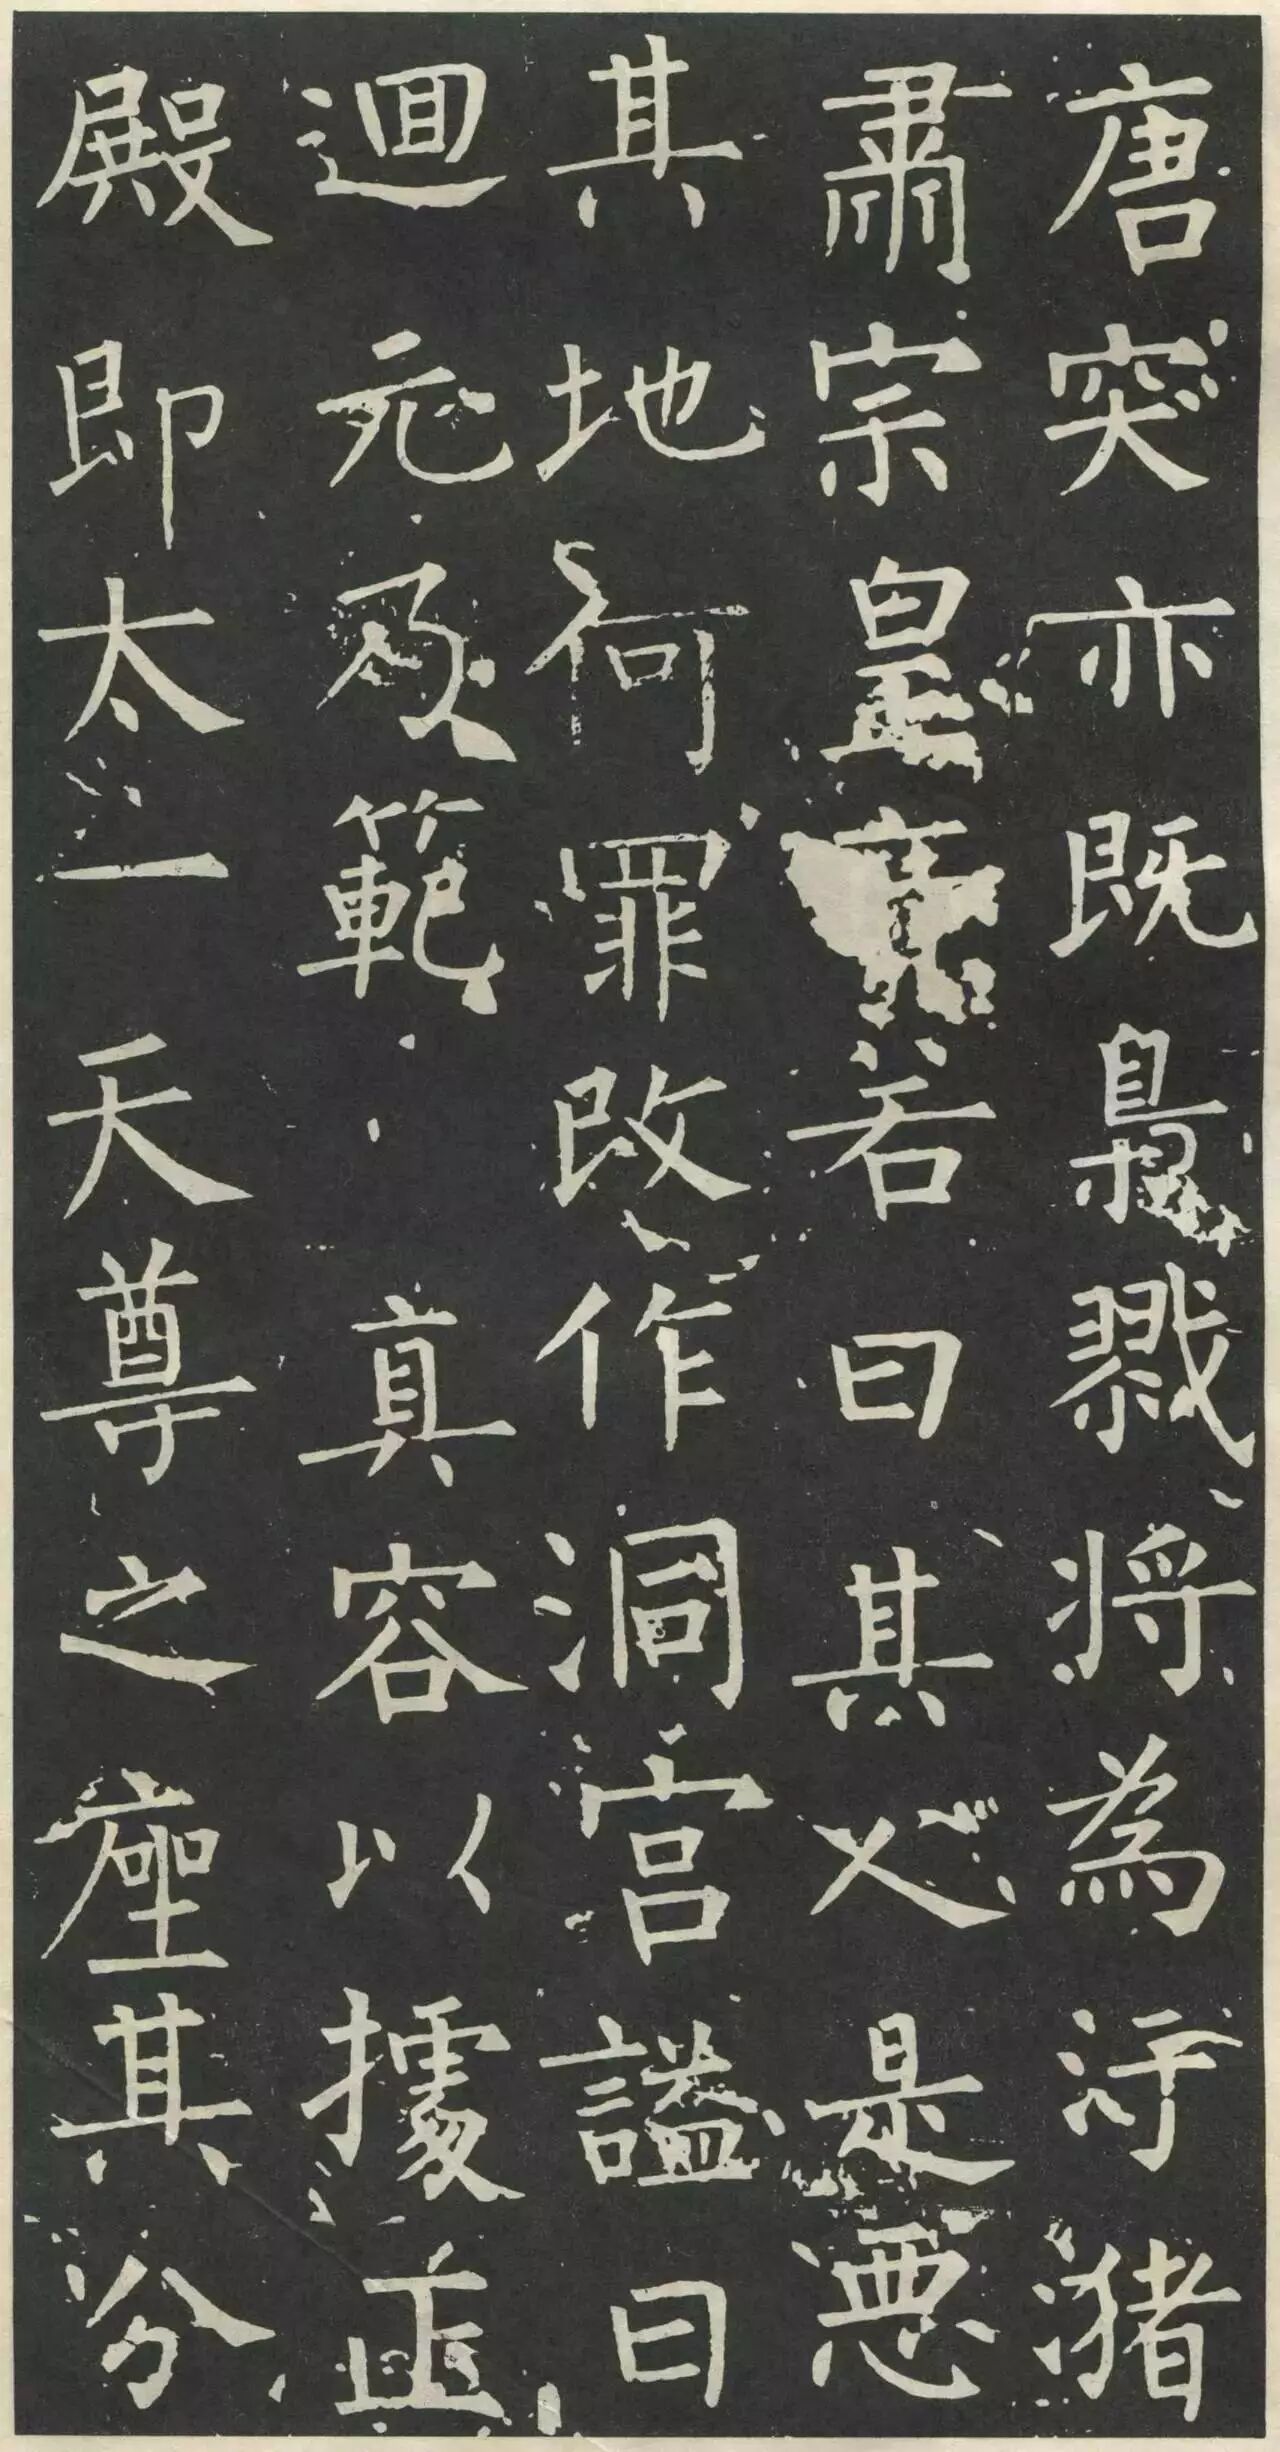 唐突亦既梟戮將為汙潴
肅宗皇帝若曰其人是惡
其地何罪改作洞宮謚曰
迴元乃範真容以據正
殿即太一天尊之座其分